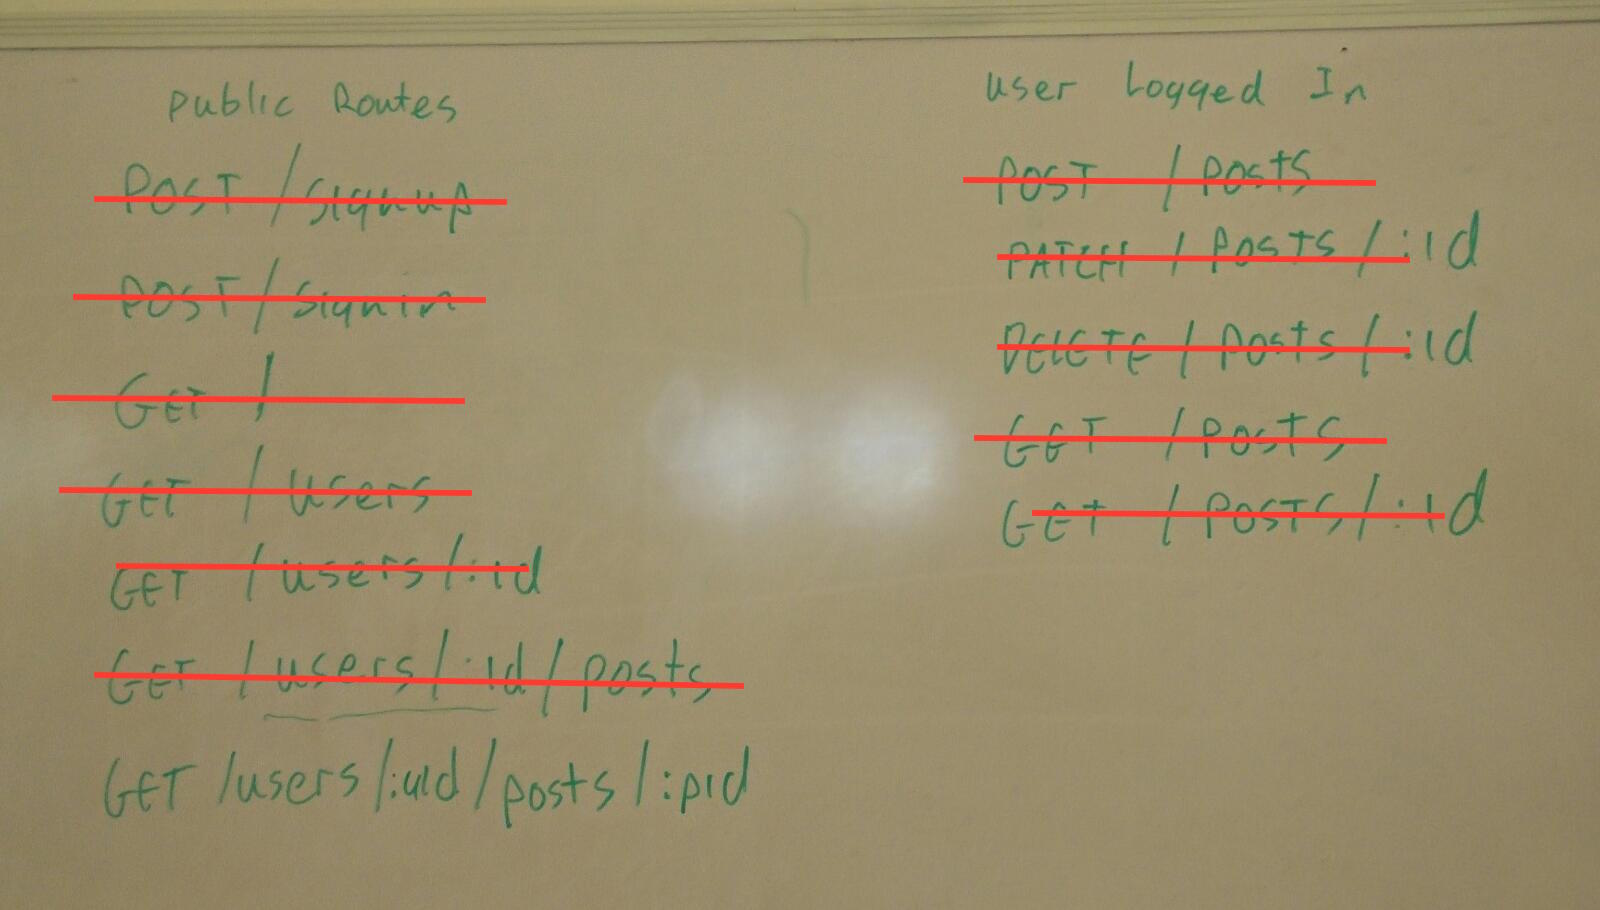 Public Routes
POST /signup
POST /signin
GET /
GET /users
GET /users/:id
GET /users/:id/posts
GET /users/:uid/posts/:pid
User Logged In
POST /posts
PATCH /posts/:id
DELETE /posts/:id
GET /posts
GET /posts/:id